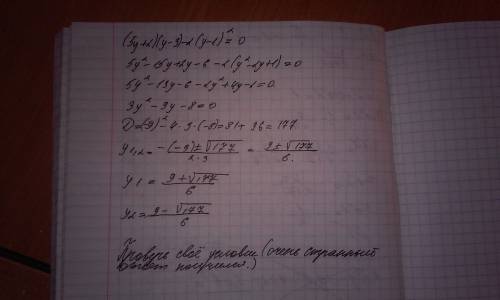 (5y+2)(y-3)-2(y-1)²=0
5y²-15y+2y-6-2(y²-2y+1)=0
5y²-13y-6-2y²+4y-2=0
3y²-9y-8=0
D=(-9)²-4·3·(-8)=81+96=177
y1,2=-(-9)±√177/2·3=9±√177/6.
y1=9+√177/6
y2=9-√177/6
Проверь своё условие (очень странный
ответ получился.)